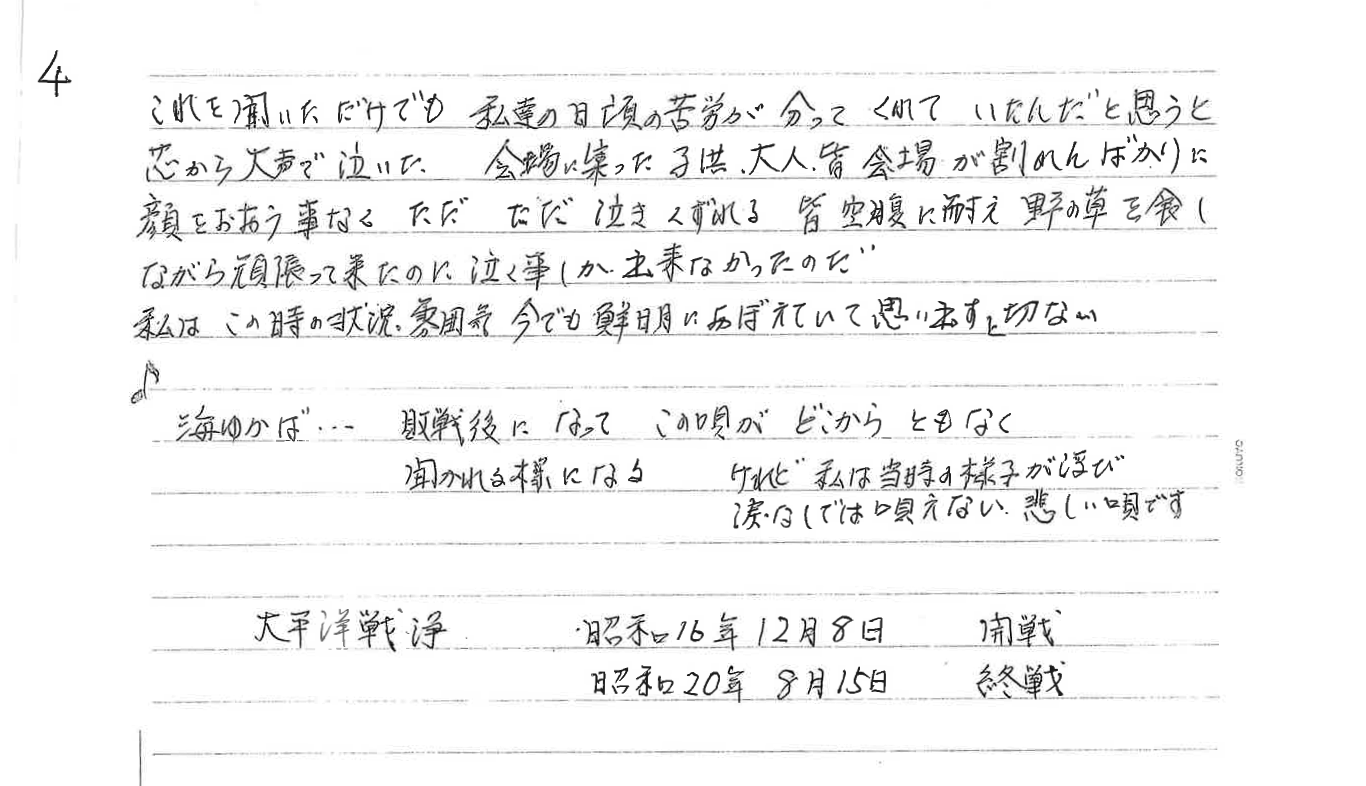 4
これを聞いただけでも 私達の日頃の苦労が 分って くれて いたんだ と思うと
芯から大声で泣いた 会場に集った子供、大人、皆 会場が割れんばかりに
顔をおおう事なく ただ ただ泣きくずれる 皆空腹に耐え 野の草を食し
ながら頑張って来たのに泣く事しか出来なかったのだ
私は この時の状況、雰囲気 今でも鮮明におぼえていて思い出すと切ない
♪
海ゆかば… 敗戦後になって この唄が どこから ともなく
聞かれる様になる けれど 私は当時の様子が浮び
涙なしでは唄えない、悲しい唄です
大平洋戦浄 昭和16年12月8日 開戦
昭和20年 8月15日 終戦